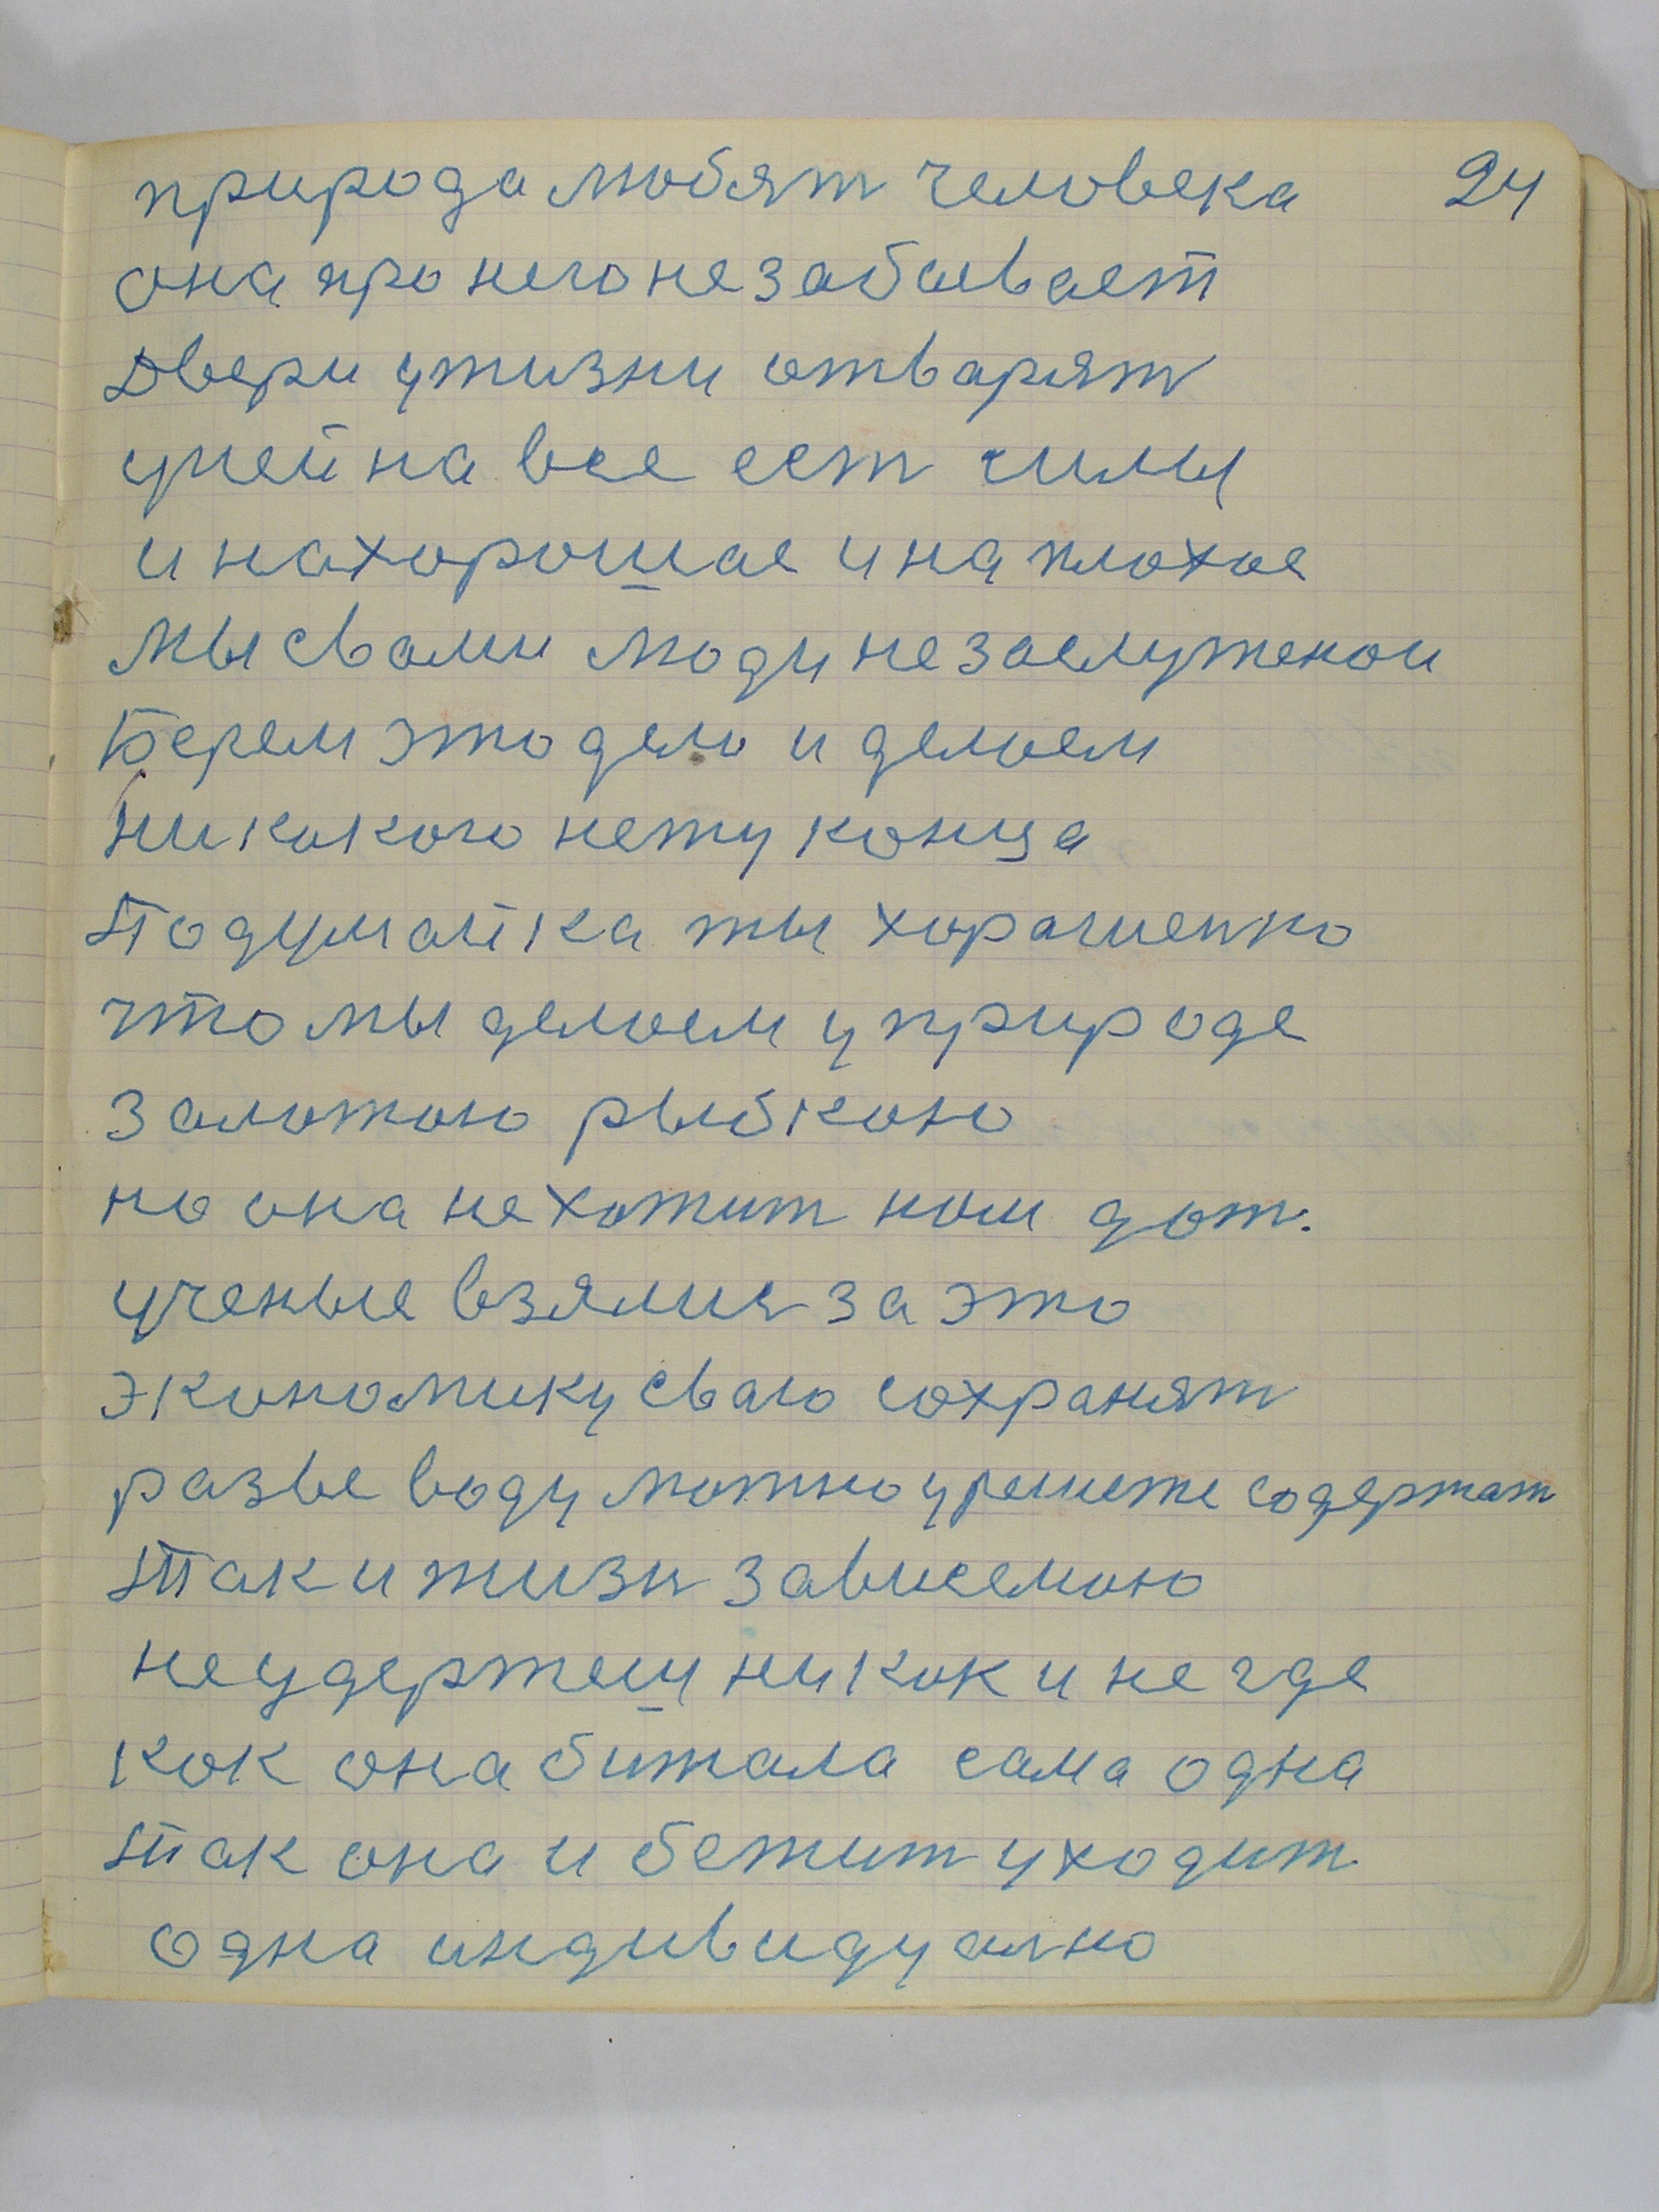 природа любят человека 24
она про него не забывает
Двери у жизни отварят
у ней на все ест силы
и на хорошае и на плохое
мы с вами люди не заслуженои
Берем это дело и делоем
никокого нету конца
Подумай ка ты хорашенко
что мы делоем у природе
Залотою рыбкою
но она не хотит ном дот.
ученые взялис за это
экономику сваю сохранят
разве воду можно у решете содержат
Так и жизн зависемою
не удержеш никок и не где
кок она бижала сама одна
Так она и бежит уходит
одна индивидуално